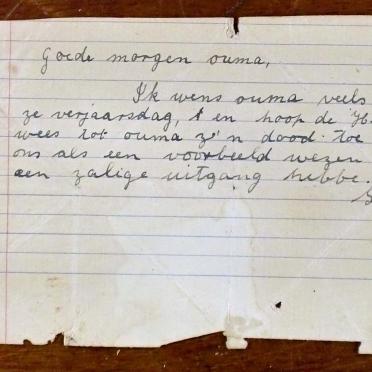 Goede morgen ouma,
Ik wens ouma veels
ze verjaarsdag, & en hoop de H
wees tot ouma ze'n dood. toe
ons als een voorbeeld wezen
een zalige uitgang hebbe.